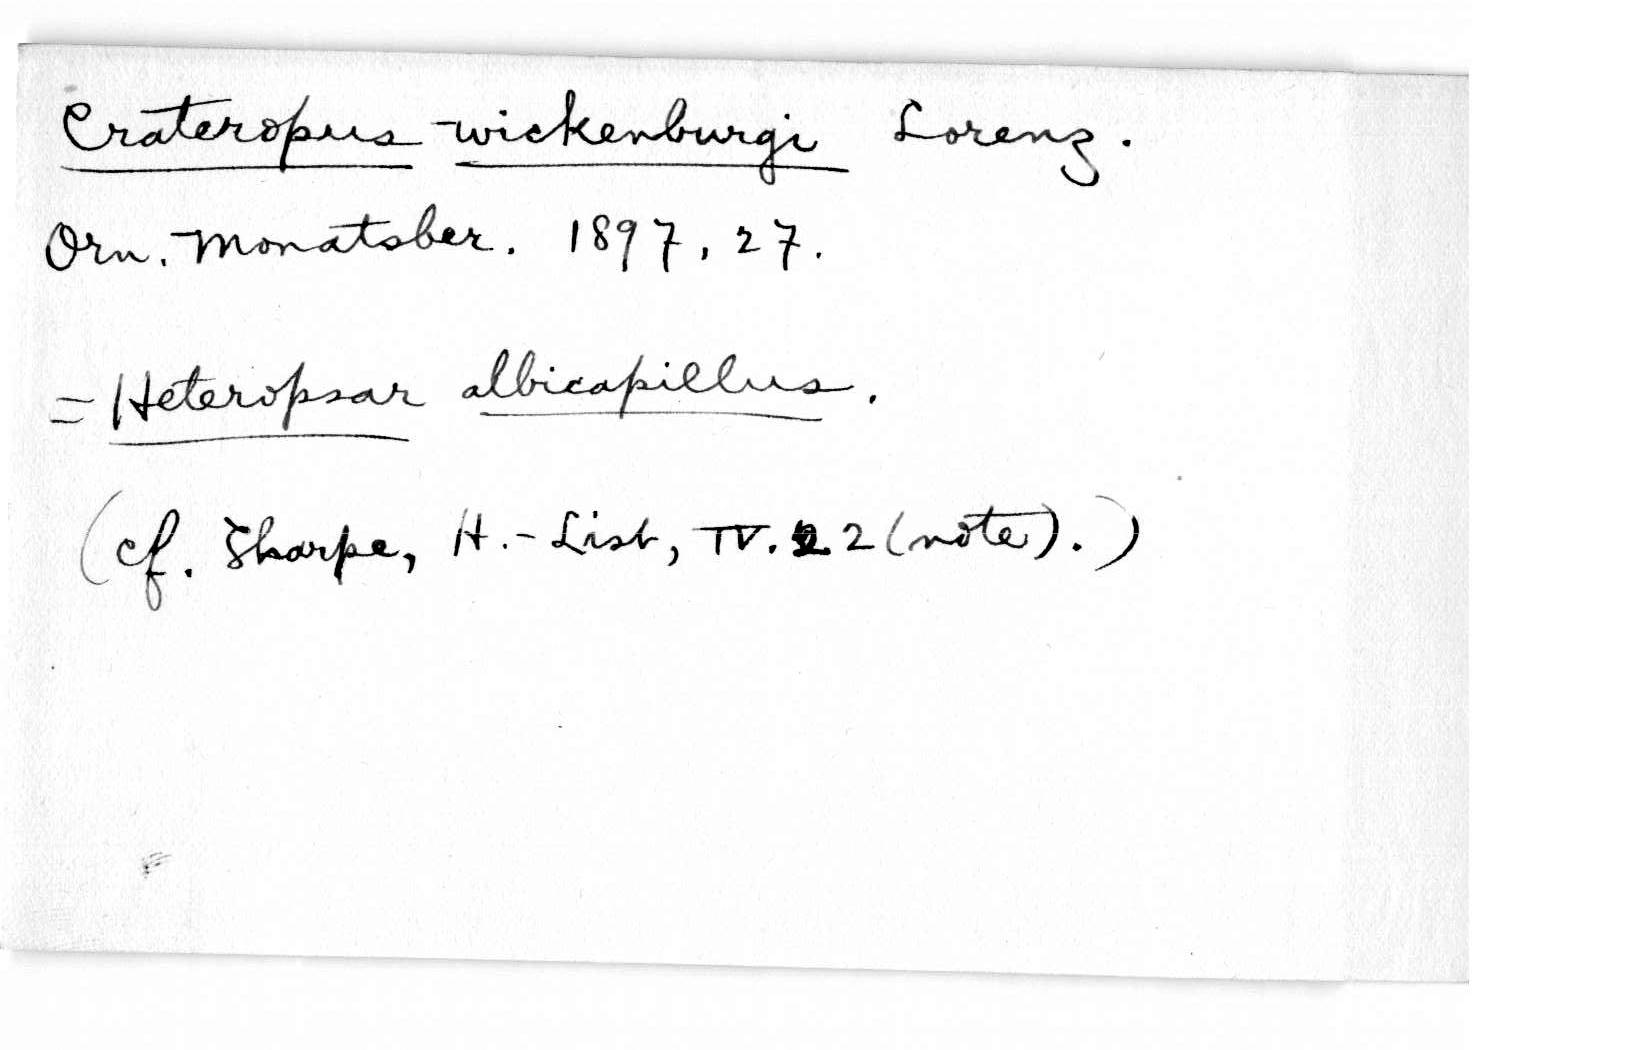 Crateropus wickenburgi Lorenz.
Orn. Monatsber. 1897, 27.
= Heteropsar albicapillus.
(cf. Sharpe, H.-List, IV. 22 (note).)